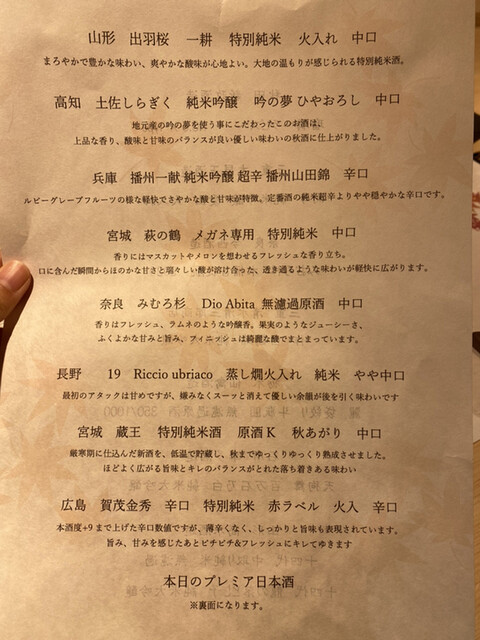 山形 出羽桜 一耕 特別純米 火入れ 中口
まろやかで豊かな味わい、爽やかな酸味が心地よい。大地の温もりが感じられる特別純米酒。
高知 土佐しらぎく 純米吟醸 吟の夢 ひやおろし 中口
地元産の吟の夢を使う事にこだわったこのお酒は、
上品な香り、酸味と甘味のバランスが良い優しい味わいの秋酒に仕上がりました。
兵庫 播州一献 純米吟醸 超辛 播州山田錦 辛口
ルビーグレープフルーツの様な軽快でさやかな酸と甘味が特徴、定番酒の純米超辛よりやや穏やかな辛口です。
宮城 萩の鶴 メガネ専用 特別純米 中口
香りにはマスカットやメロンを想わせるフレッシュな香り立ち。
口に含んだ瞬間からほのかな甘さと瑞々しい酸が溶け合った、透き通るような味わいが軽快に広がります。
奈良 みむろ杉 Dio Abita 無濾過原酒 中口
香りはフレッシュ、ラムネのような吟醸香。果実のようなジューシーさ、
ふくよかな甘みと旨み、フィニッシュは綺麗な酸でまとまっています。
長野 19 Riccio ubriaco 蒸し燗火入れ 純米 やや中口
最初のアタックは甘めですが、嫌みなくスーッと消えて優しい余韻が後を引く味わいです
宮城 蔵王 特別純米酒 原酒K 秋あがり 中口
厳寒期に仕込んだ新酒を、低温で貯蔵し、秋までゆっくりゆっくり熟成させました。
ほどよく広がる旨味とキレのバランスがとれた落ち着きある味わい
広島 賀茂金秀 辛口 特別純米 赤ラベル 火入 辛口
日本酒度+9まで上げた辛口数値ですが、薄辛くなく、しっかりと旨味も表現されています。
旨み、甘みを感じたあとピチピチ&フレッシュにキレてゆきます
本日のプレミア日本酒
※裏面になります。